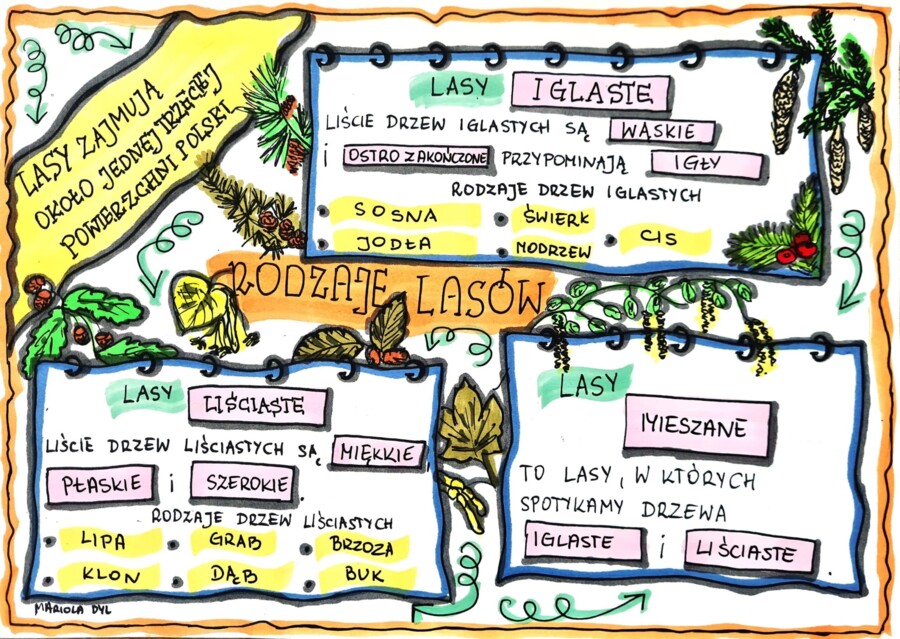 LASY ZAJMUJĄ
OKOŁO JEDNEJ TRZECIEJ
POWIERZCHNI POLSKI
LASY IGLASTE
LIŚCIE DRZEW IGLASTYCH SĄ WĄSKIE
i OSTRO ZAKOŃCZONE PRZYPOMINAJĄ IGŁY
RODZAJE DRZEW IGLASTYCH
SOSNA ŚWIERK CIS
JODŁA MODRZEW
RODZAJE LASÓW
LASY LIŚCIASTE
LIŚCIE DRZEW LIŚCIASTYCH SĄ MIĘKKIE,
PŁASKIE i SZEROKIE.
RODZAJE DRZEW LIŚCIASTYCH
LIPA GRAB BRZOZA
KLON DĄB BUK
MARIOLA DYL
LASY
MIESZANE
TO LASY, W KTÓRYCH
SPOTYKAMY DRZEWA
IGLASTE i LIŚCIASTE.